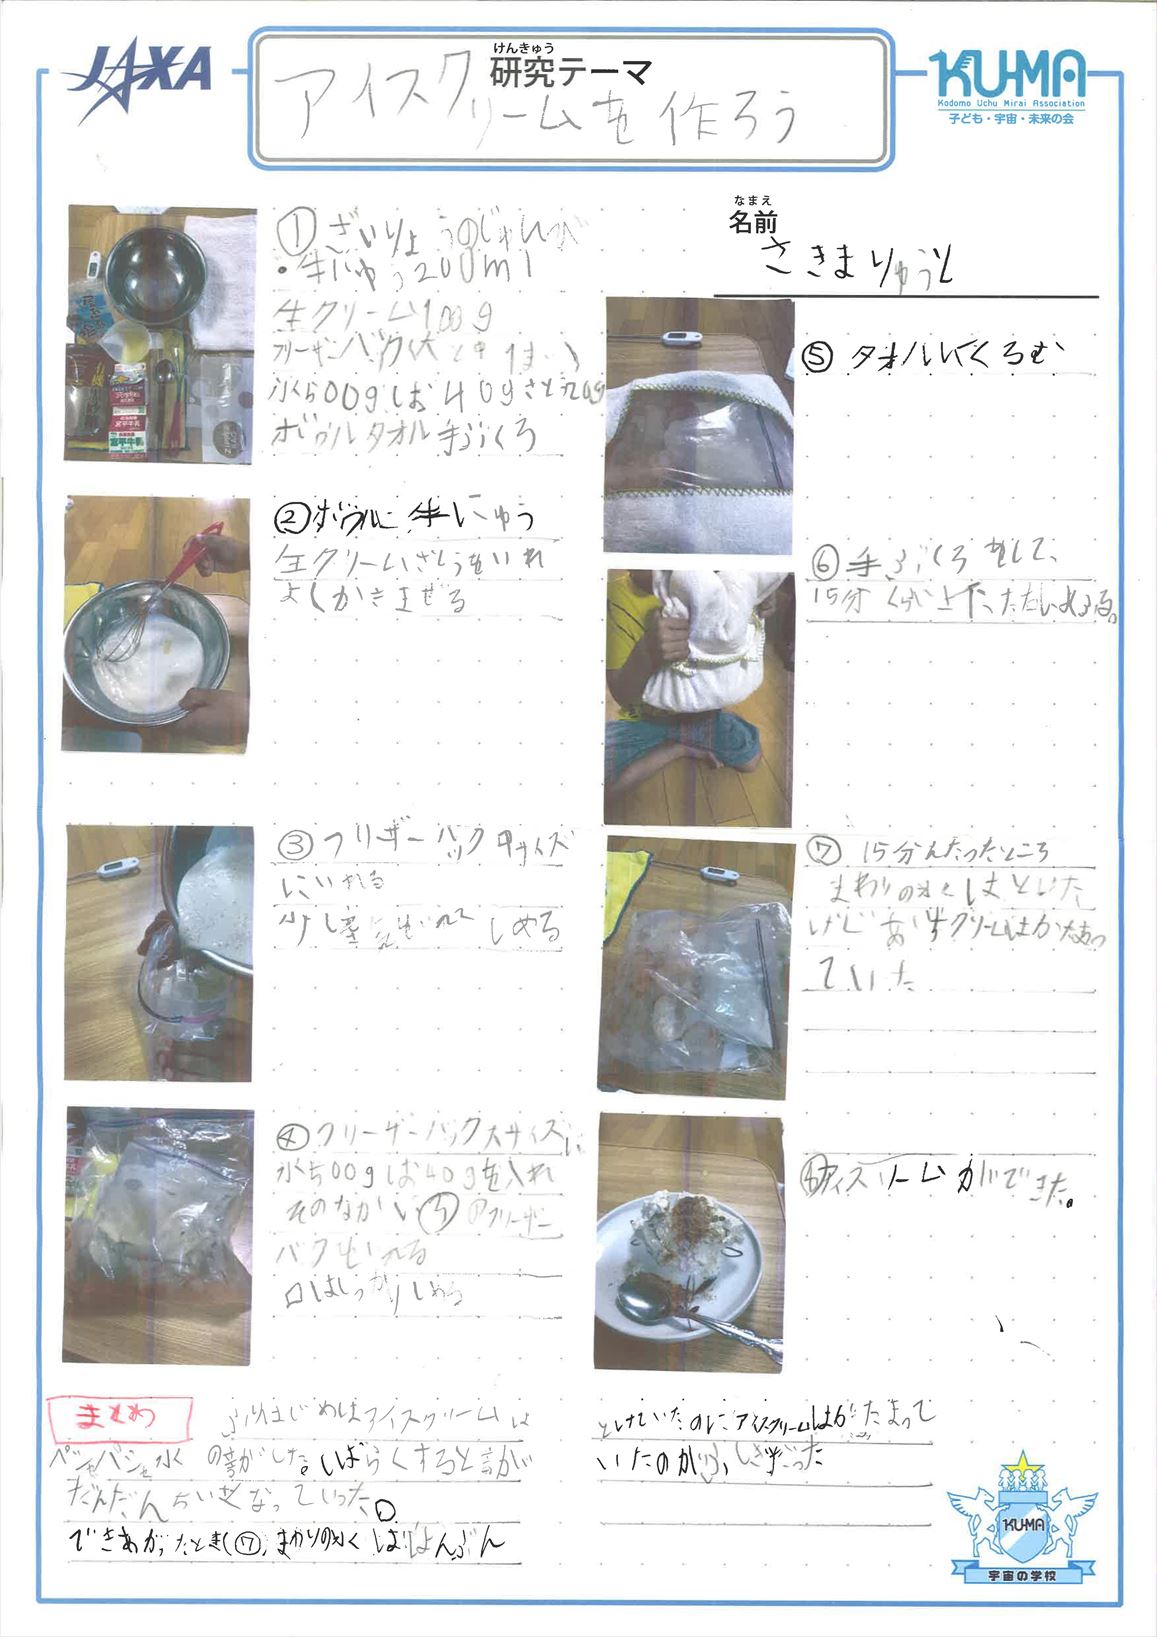 JAXA
けんきゅう
研究テーマ
アイスクリームを作ろう
KU-MA
Kodomo Uchu Mirai Association
子ども・宇宙・未来の会
なまえ
名前
さきまりゅうし
① ざいりょうのじゅんび
・牛にゅう200ml
生クリーム100g
フリーザーバック大と中1まい
氷500gしお40gさとう20g
ボウルタオル手ぶくろ
②ボウルに牛にゅう
生クリームさとうをいれ
よくかきまぜる
③フリーザーバック中サイズ
にいれる
少し空気をいれて しめる
④フリーザーバック大サイズに
氷500gしお40gを入れ
そのなかに③のフリーザー
バクをいれる
口はしっかりしめる
⑤ タオルでくるむ
⑥手ぶくろをして、
15分くらい上下
⑦ 15分んたったところ
まわりの氷は
生クリームはかたまっ
ていた
アイスリームができた。
まとめ
ふりはじめはアイスクリームは
ペシャバシャ水の音がした。しばらくすると音が
だんだんちいさくなっていった。
できあがったとき(⑦)、まわりの氷ははんぶん
とけていたのにアイスクリームはかたまって
いたのがふしぎだった
KUMA
宇宙の学校